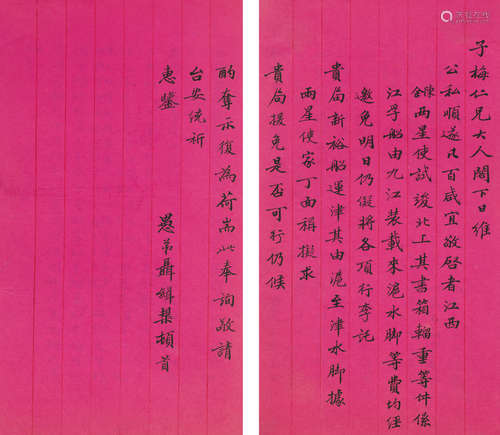 子梅仁兄大人閣下日維
公私順遂凡百咸宜敬啓者江西
陳余兩星使試竣北上其書箱輜重等件係
江孚船由九江裝載來滬水脚等費均經
邀免明日仍擬將各項行李託
貴局新裕船運津其由滬至津水脚據
兩星使家丁面稱擬求
貴局援免是否可行仍候
酌奪示復為荷耑此奉詢敬請
台安統祈
惠鑒
愚弟聶緝椝頓首